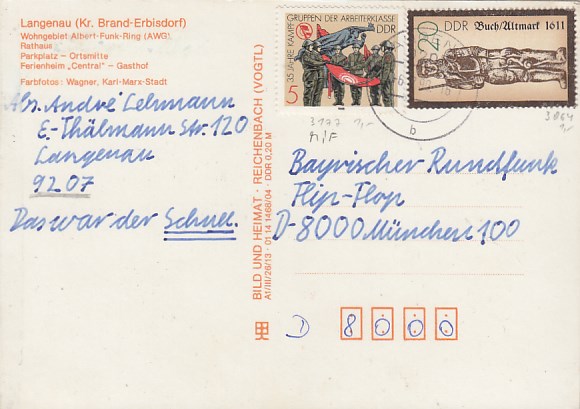 Langenau (Kr. Brand-Erbisdorf)
Wohngebiet Albert-Funk-Ring (AWG)
Rathaus
Parkplatz – Ortsmitte
Ferienheim „Central“ – Gasthof
Farbfotos: Wagner, Karl-Marx-Stadt
Abs. André Lehmann
E.-Thälmann Str. 120
Langenau
9207
Das war der Schnee.
BILD UND HEIMAT · REICHENBACH (VOGTL)
A1/III/26/13 · 01 14 1468/04 · DDR 0,20 M
35 JAHRE KAMPFGRUPPEN DER ARBEITERKLASSE
DDR
5
DDR Buch/Altmark 1611
20
b
3177 1,-
3064
1,-
Bayrischer Rundfunk
Flip-Flop
D-8000 München 100
D 8000